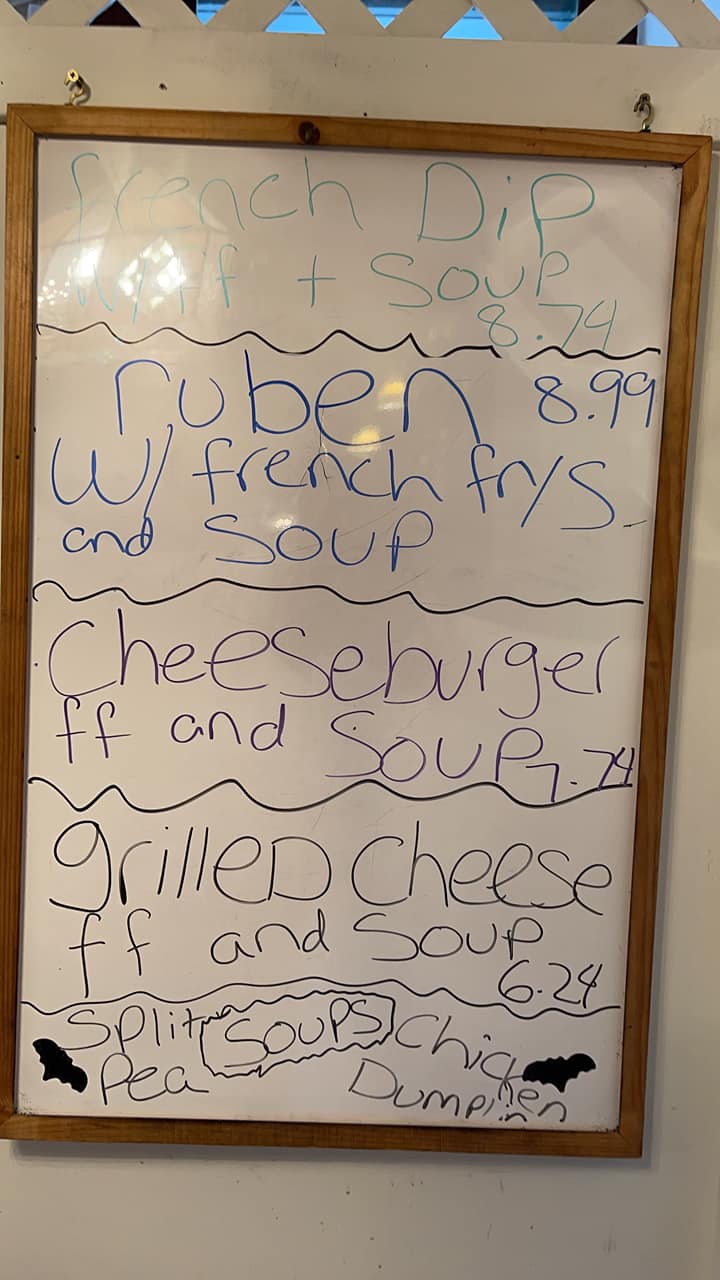 french Dip
w/ff + Soup
8.74
ruben 8.99
w/ french fry/s
and Soup
Cheeseburger
ff and Soup 7.74
grilleD Cheese
ff and Soup
6.24
Split SOUPS Chicken
Pea Dumplin